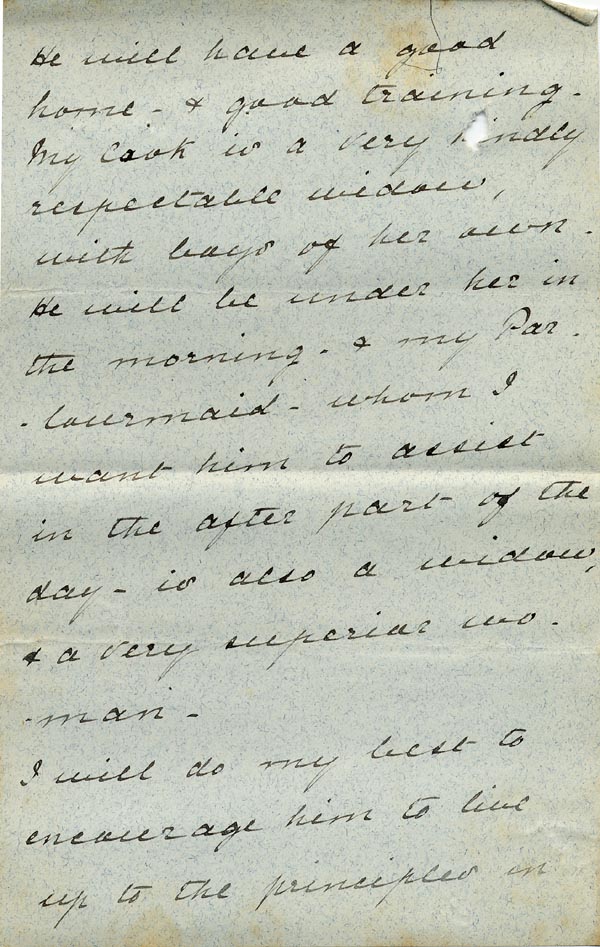 He will have a good
home - & good training -
My Cook is a very kindly
respectable widow,
with boys of her own -
He will be under her in
the morning - & my Par -
- lourmaid - whom I
want him to assist
in the after part of the
day - is also a widow,
& a very superior wo -
- man -
I will do my best to
encourage him to live
up to the principles in